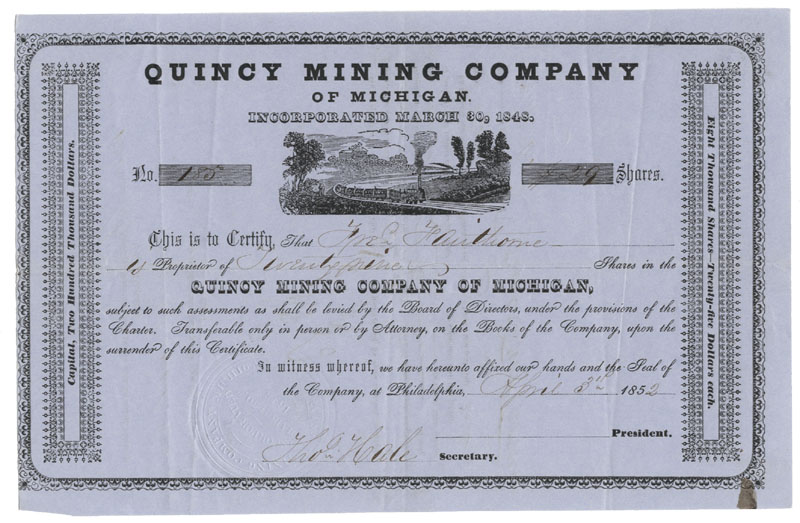 QUINCY MINING COMPANY
OF MICHIGAN.
INCORPORATED MARCH 30, 1848.
No. 185 29 Shares.
This is to Certify, That Hawthorne
is Proprietor of Twenty nine Shares in the
QUINCY MINING COMPANY OF MICHIGAN,
subject to such assessments as shall be levied by the Board of Directors, under the provisions of the
Charter. Transferable only in person or by Attorney, on the Books of the Company, upon the
surrender of this Certificate.
In witness whereof, we have hereunto affixed our hands and the Seal of
the Company, at Philadelphia, April 3rd 1852
President.
Thos Hale Secretary.
Capital, Two Hundred Thousand Dollars.
Eight Thousand Shares—Twenty-five Dollars each.